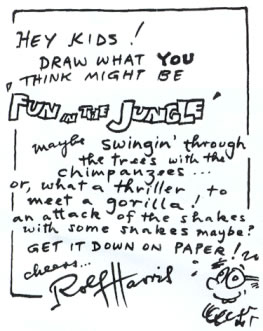 HEY KIDS!
DRAW WHAT YOU
THINK MIGHT BE
'FUN IN THE JUNGLE'
maybe swingin' through
the trees with the
chimpanzees...
or, what a thriller to
meet a gorilla!
an attack of the shakes
with some snakes maybe?
GET IT DOWN ON PAPER!
cheers...
Rolf Harris